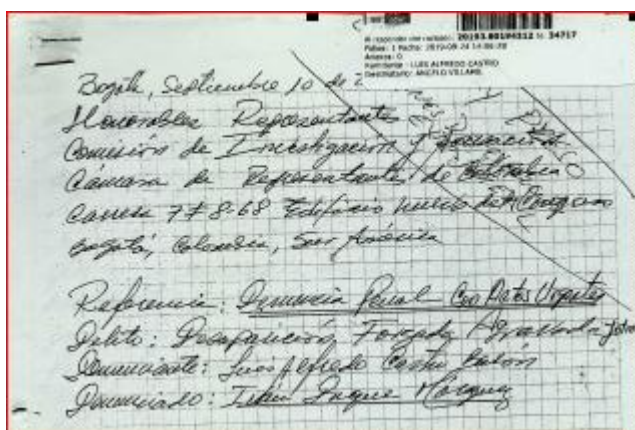 Al responder cite radicado: 20193.00194312 Id: 34717
Folios: 1 Fecha: 2019-09-24 14:06:20
Anexos: 0
Remitente : LUIS ALFREDO CASTRO
Destinatario: ANGELO VILLAMIL
Bogotá, Septiembre 10 de 2
Honorables Representantes
Comisión de Investigación y Acusación
Cámara de Representantes de Colombia
Carrera 7 # 8-68 Edificio nuevo del Congreso
Bogotá, Colombia, Sur América
Referencia: Denuncia Penal Con Datos Urgentes
Delito: Desaparición Forzada Agravada
Denunciante: Luis Alfredo Castro Barón
Denunciado: Iván Duque Márquez